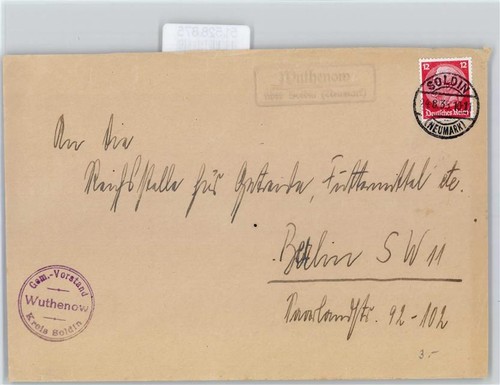 Wuthenow
über Soldin (Neumark)
12 12
Deutsches Reich
SOLDIN
(NEUMARK)
An die
Reichsstelle für Getreide, Futtermittel etc.
Berlin SW 11
Saarlandstr. 92-102
Gem.-Vorstand
Wuthenow
Kreis Soldin
3.-